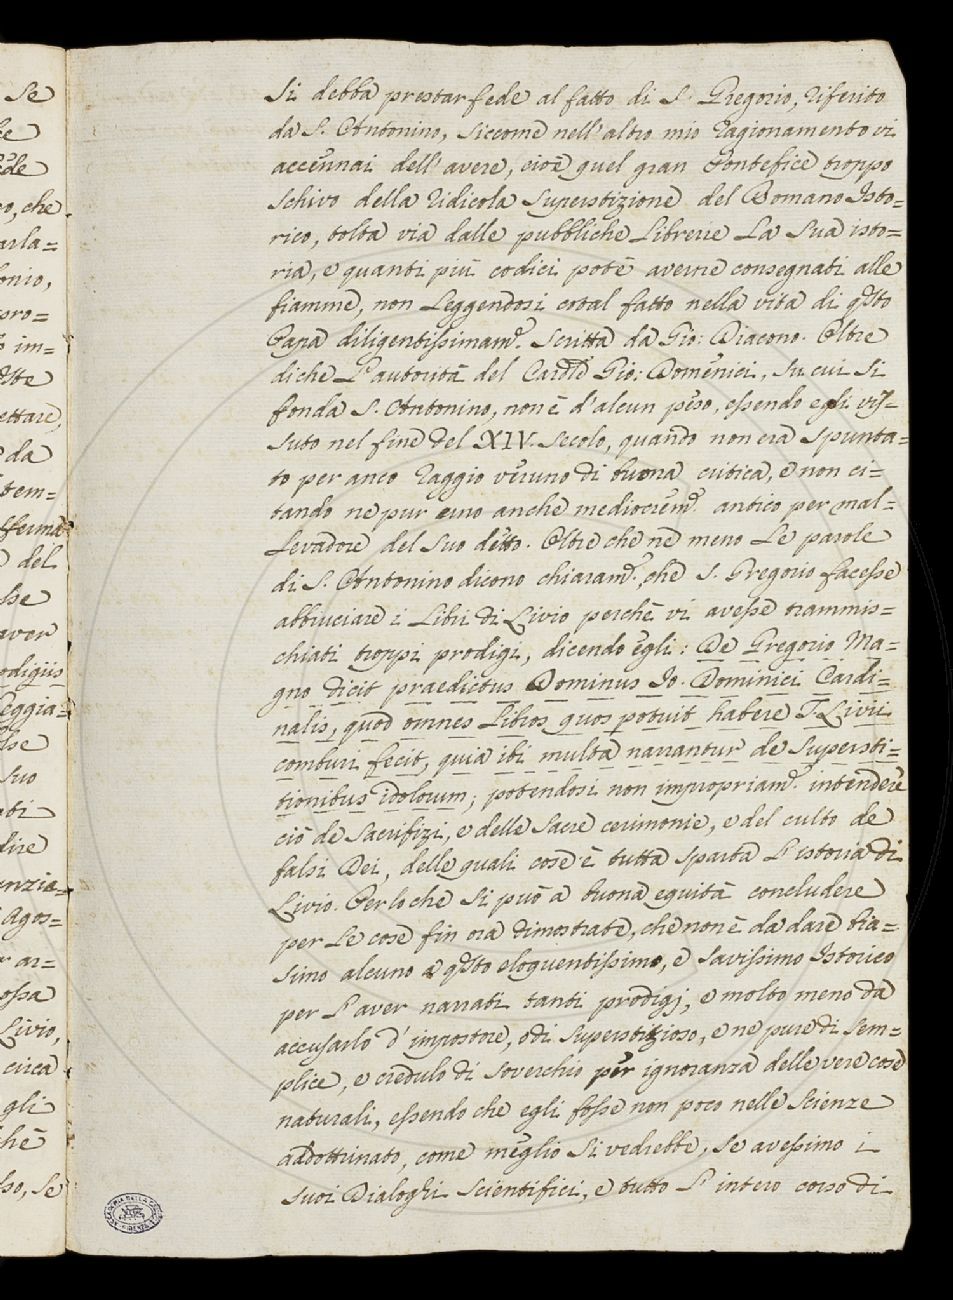 Se
fede
co, che
arla=
onio,
pro=
o im=
ettare,
da
tem=
fferma
del
sse
aver
odigiis
eggia=
lse
suo
ati
dire
enzia=
Agos=
r ar=
ossa
Livio,
circa
gli
chè
so, se
si debba prestar fede al fatto di S. Gregorio, riferito
da S. Antonino, siccome nell'altro mio ragionamento vi
accennai dell'avere, cioè quel gran Pontefice troppo
schivo della ridicola superstizione del Romano Isto=
rico, tolta via dalle pubbliche Librerie La Sua isto=
ria, e quanti più codici potè averne consegnati alle
fiamme, non Leggendosi cotal fatto nella vita di qsto
Papa diligentissimam.e scritta da Gio: Diacono. Oltre
di che L'autorità del Cardle Gio: Domenici, su cui si
fonda S. Antonino, non è d'alcun peso, essendo egli vis=
suto nel fine del XIV. secolo, quando non era spunta=
to per anco raggio veruno di buona critica, e non ci=
tando ne pur uno anche mediocrem.e antico per mal=
Levadore del suo detto. Oltre che ne meno Le parole
di S. Antonino dicono chiaram.e, che S. Gregorio facesse
abbruciare i Libri di Livio perchè vi avesse trammis=
chiati troppi prodigi, dicendo egli: De Gregorio Ma=
gno dicit praedictus Dominus Io. Dominici Cardi=
nalis, quod omnes Libros quos potuit habere T. Livii
comburi fecit, quia ibi multa narrantur de Supersti=
tionibus idolorum; potendosi non impropriam.e intendere
ciò de Sacrifizi, e delle Sacre cerimonie, e del culto de
falsi Dei, delle quali cose è tutta sparta L'istoria di
Livio. Perloche si può a buona equità concludere
per Le cose fin ora dimostrate, che non è da dare bia=
simo alcuno a qsto eloquentissimo, e Savissimo Istorico
per L'aver narrati tanti prodigj, e molto meno da
accusarlo d'impostore, o di superstizioso, e ne pure di sem=
plice, e credulo di soverchio per ignoranza delle vere cose
naturali, essendo che egli fosse non poco nelle Scienze
addottrinato, come meglio si vedrebbe, se avessimo i
suoi Dialoghi scientifici, e tutto L'intero corso di